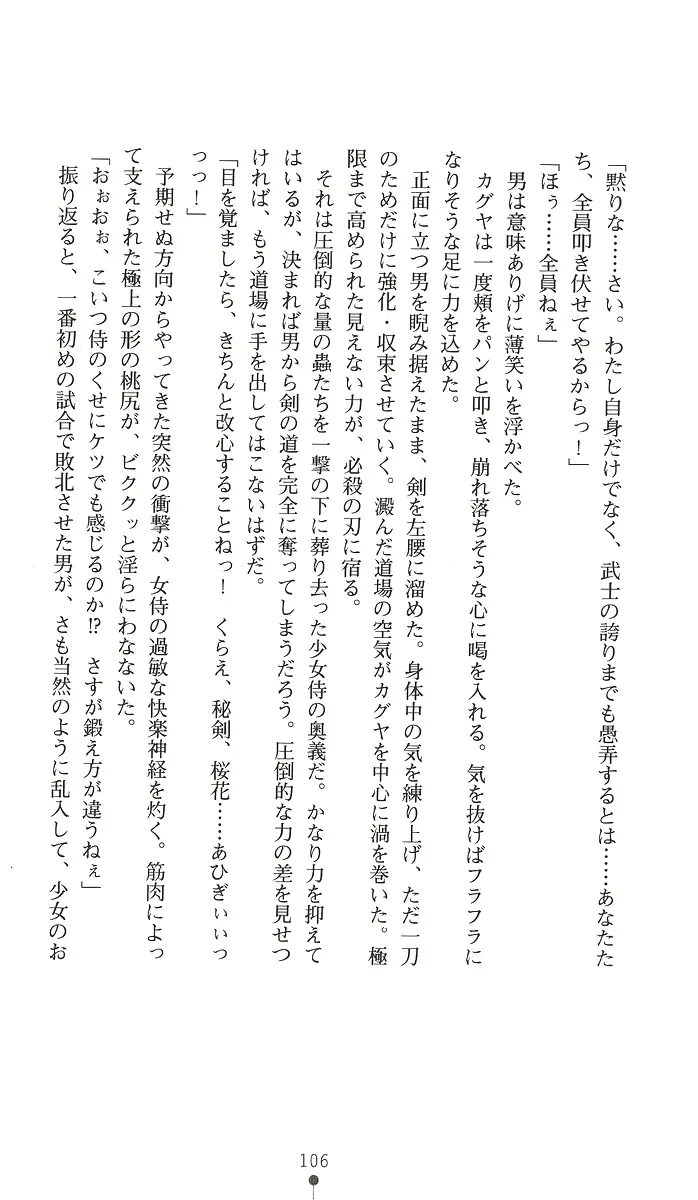 「黙りな……さい。わたし自身だけでなく、武士の誇りまでも愚弄するとは……あなたた
ち、全員叩き伏せてやるからっ！」
「ほぅ……全員ねぇ」
男は意味ありげに薄笑いを浮かべた。
カグヤは一度頬をパンと叩き、崩れ落ちそうな心に喝を入れる。気を抜けばフラフラに
なりそうな足に力を込めた。
正面に立つ男を睨み据えたまま、剣を左腰に溜めた。身体中の気を練り上げ、ただ一刀
のためだけに強化・収束させていく。澱んだ道場の空気がカグヤを中心に渦を巻いた。極
限まで高められた見えない力が、必殺の刃に宿る。
それは圧倒的な量の蟲たちを一撃の下に葬り去った少女侍の奥義だ。かなり力を抑えて
はいるが、決まれば男から剣の道を完全に奪ってしまうだろう。圧倒的な力の差を見せつ
ければ、もう道場に手を出してはこないはずだ。
「目を覚ましたら、きちんと改心することねっ！　くらえ、秘剣、桜花……あひぎぃぃつ
っっ！」
予期せぬ方向からやってきた突然の衝撃が、女侍の過敏な快楽神経を灼く。筋肉によっ
て支えられた極上の形の桃尻が、ビククッと淫らにわなないた。
「おぉおぉ、こいつ侍のくせにケツでも感じるのか!?　さすが鍛え方が違うねぇ」
振り返ると、一番初めの試合で敗北させた男が、さも当然のように乱入して、少女のお
106